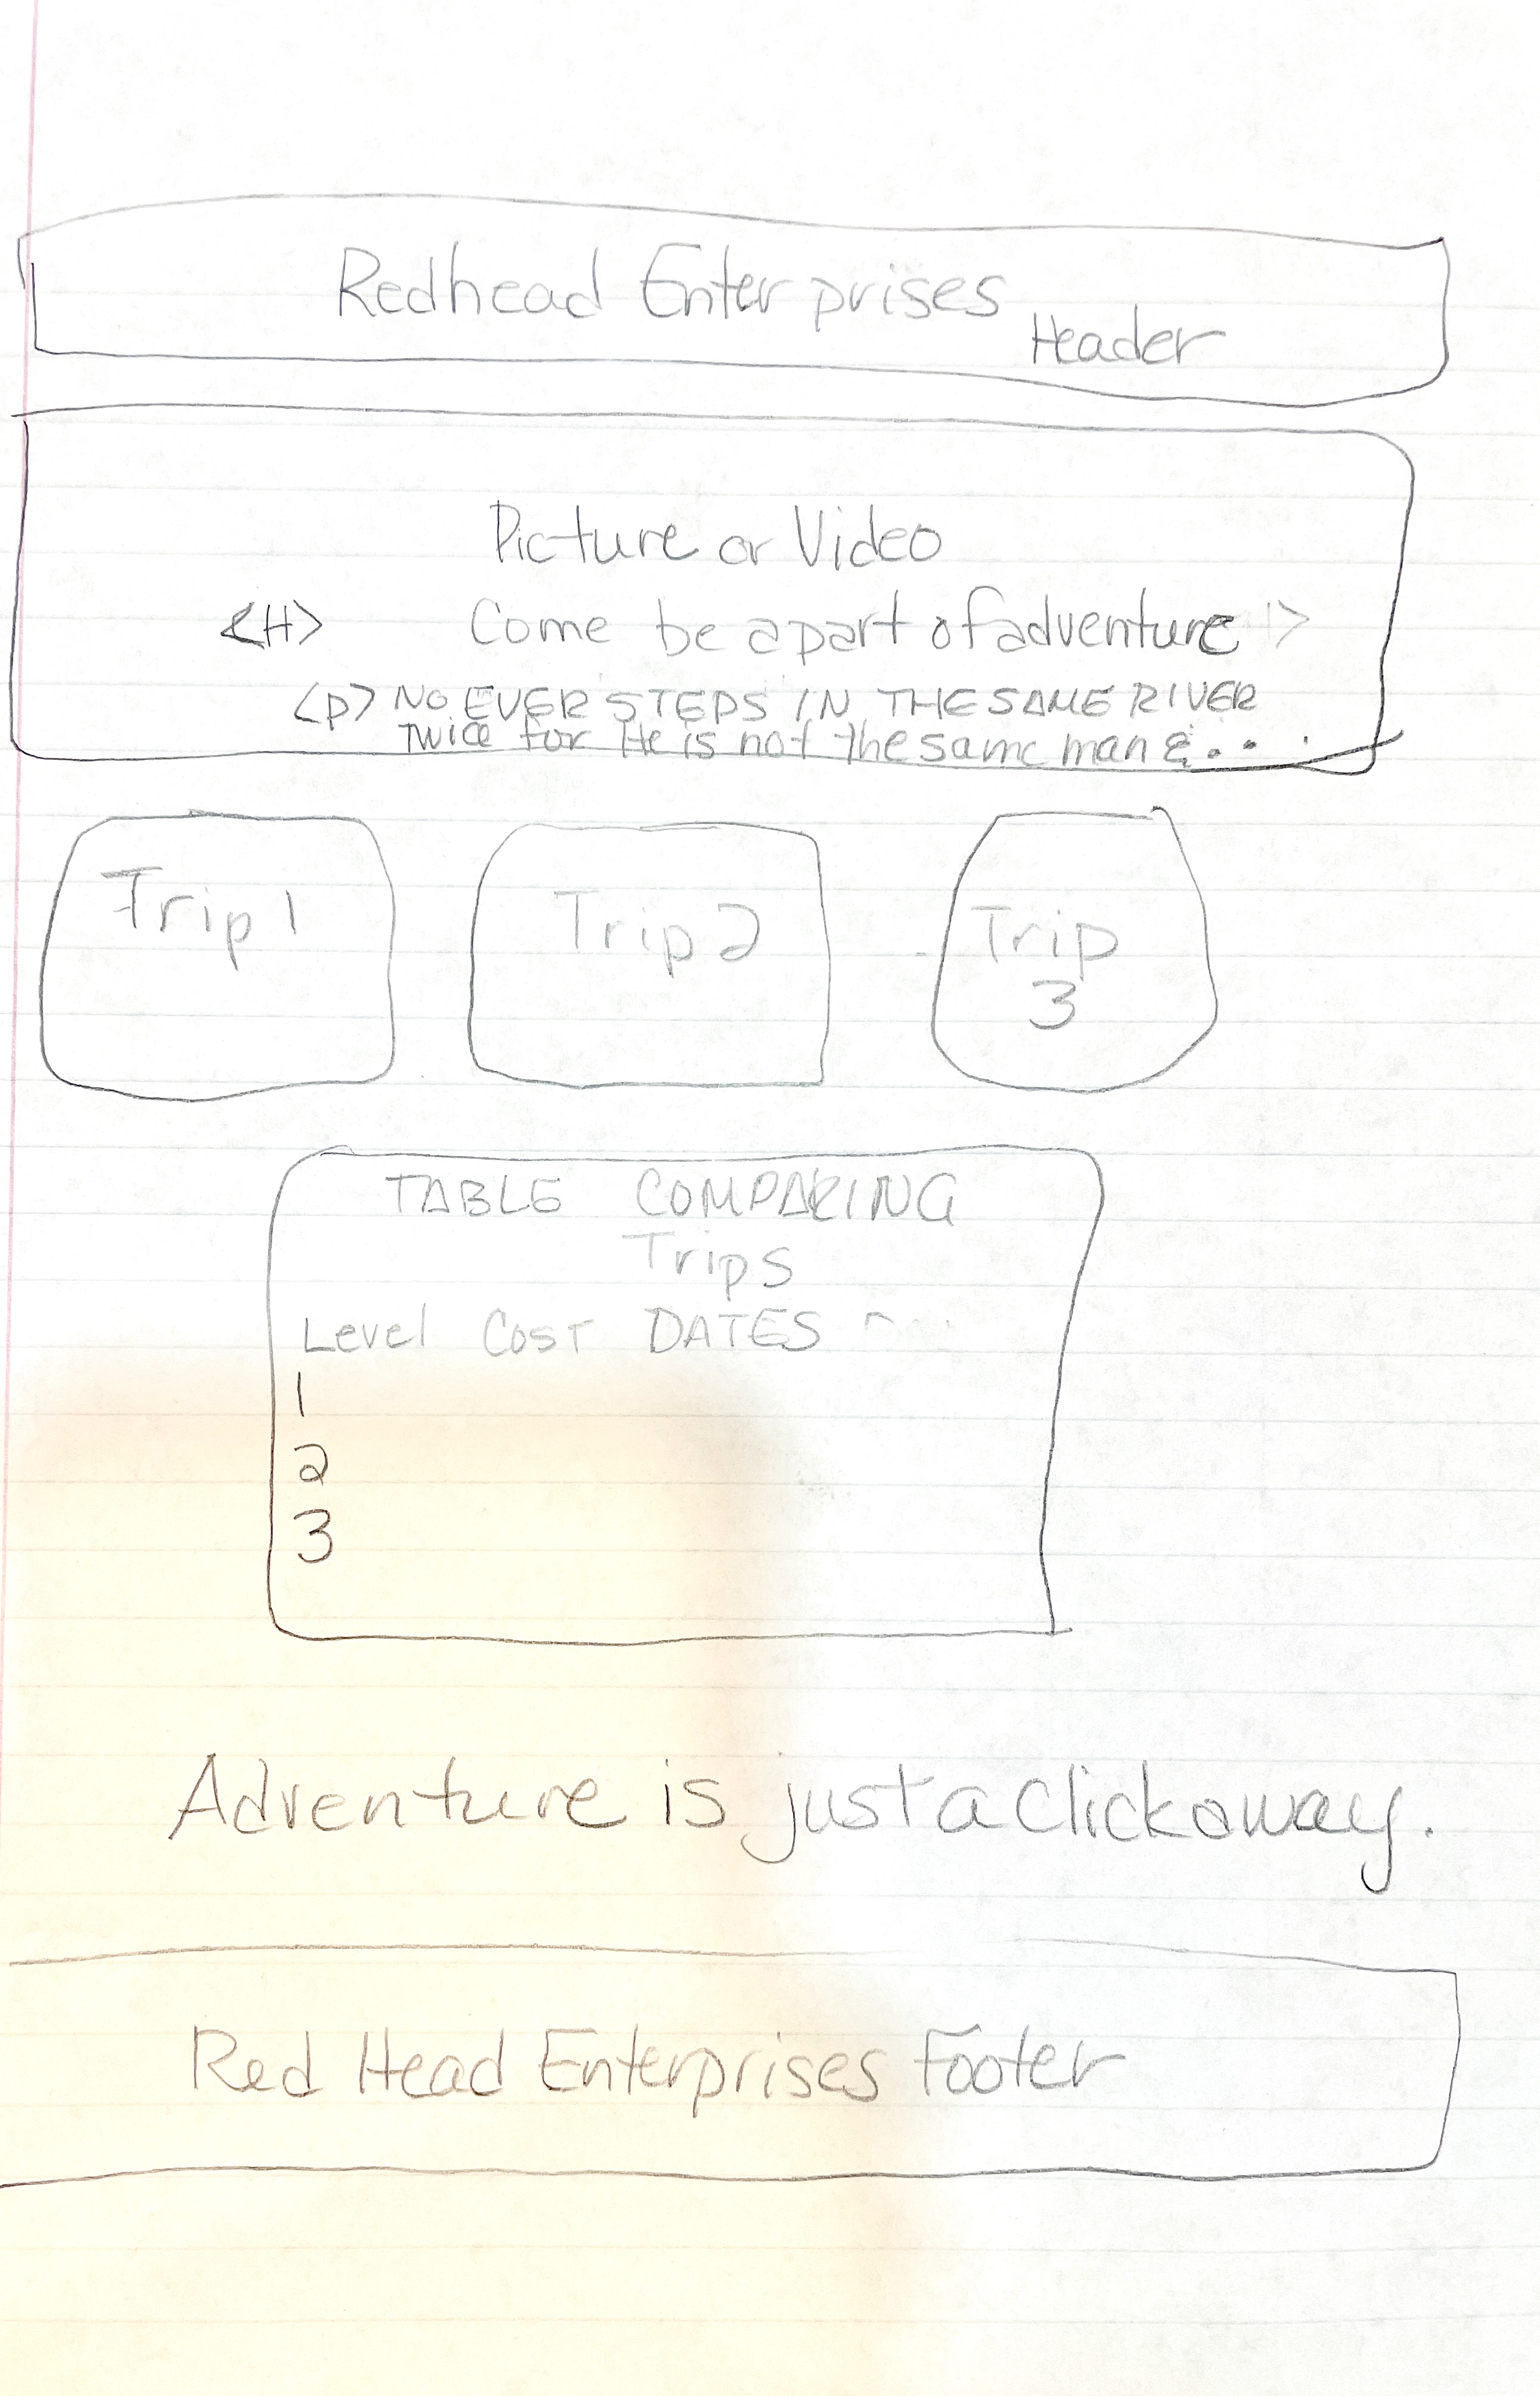 Redhead Enterprises
Header
Picture or Video
<H> Come be a part of adventure >
<p> NO EVER STEPS IN THE SAME RIVER
TWice for He is not the same man &...
Trip 1
Trip 2
Trip
3
TABLE COMPARING
Trips
Level COST DATES ...
1
2
3
Adventure is just a click away.
Red Head Enterprises Footer